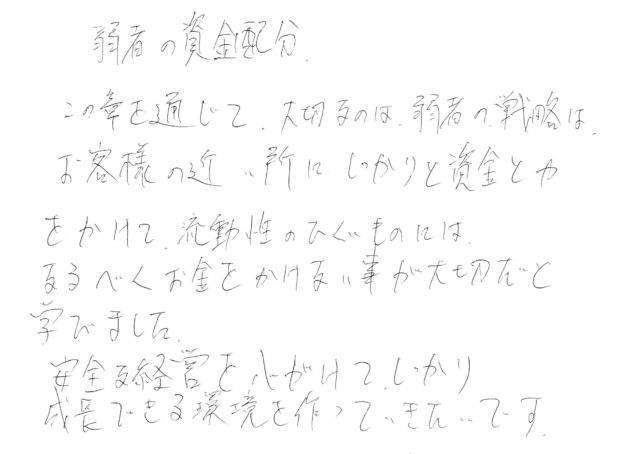 弱者の資金配分.
この章を通じて、大切なのは、弱者の戦略は、
お客様の近い所にしっかりと資金と力
をかけて、流動性のひくいものには、
なるべくお金をかけない事が大切だと
学びました。
安全な経営を心がけて、しっかり
成長できる環境を作っていきたいです。